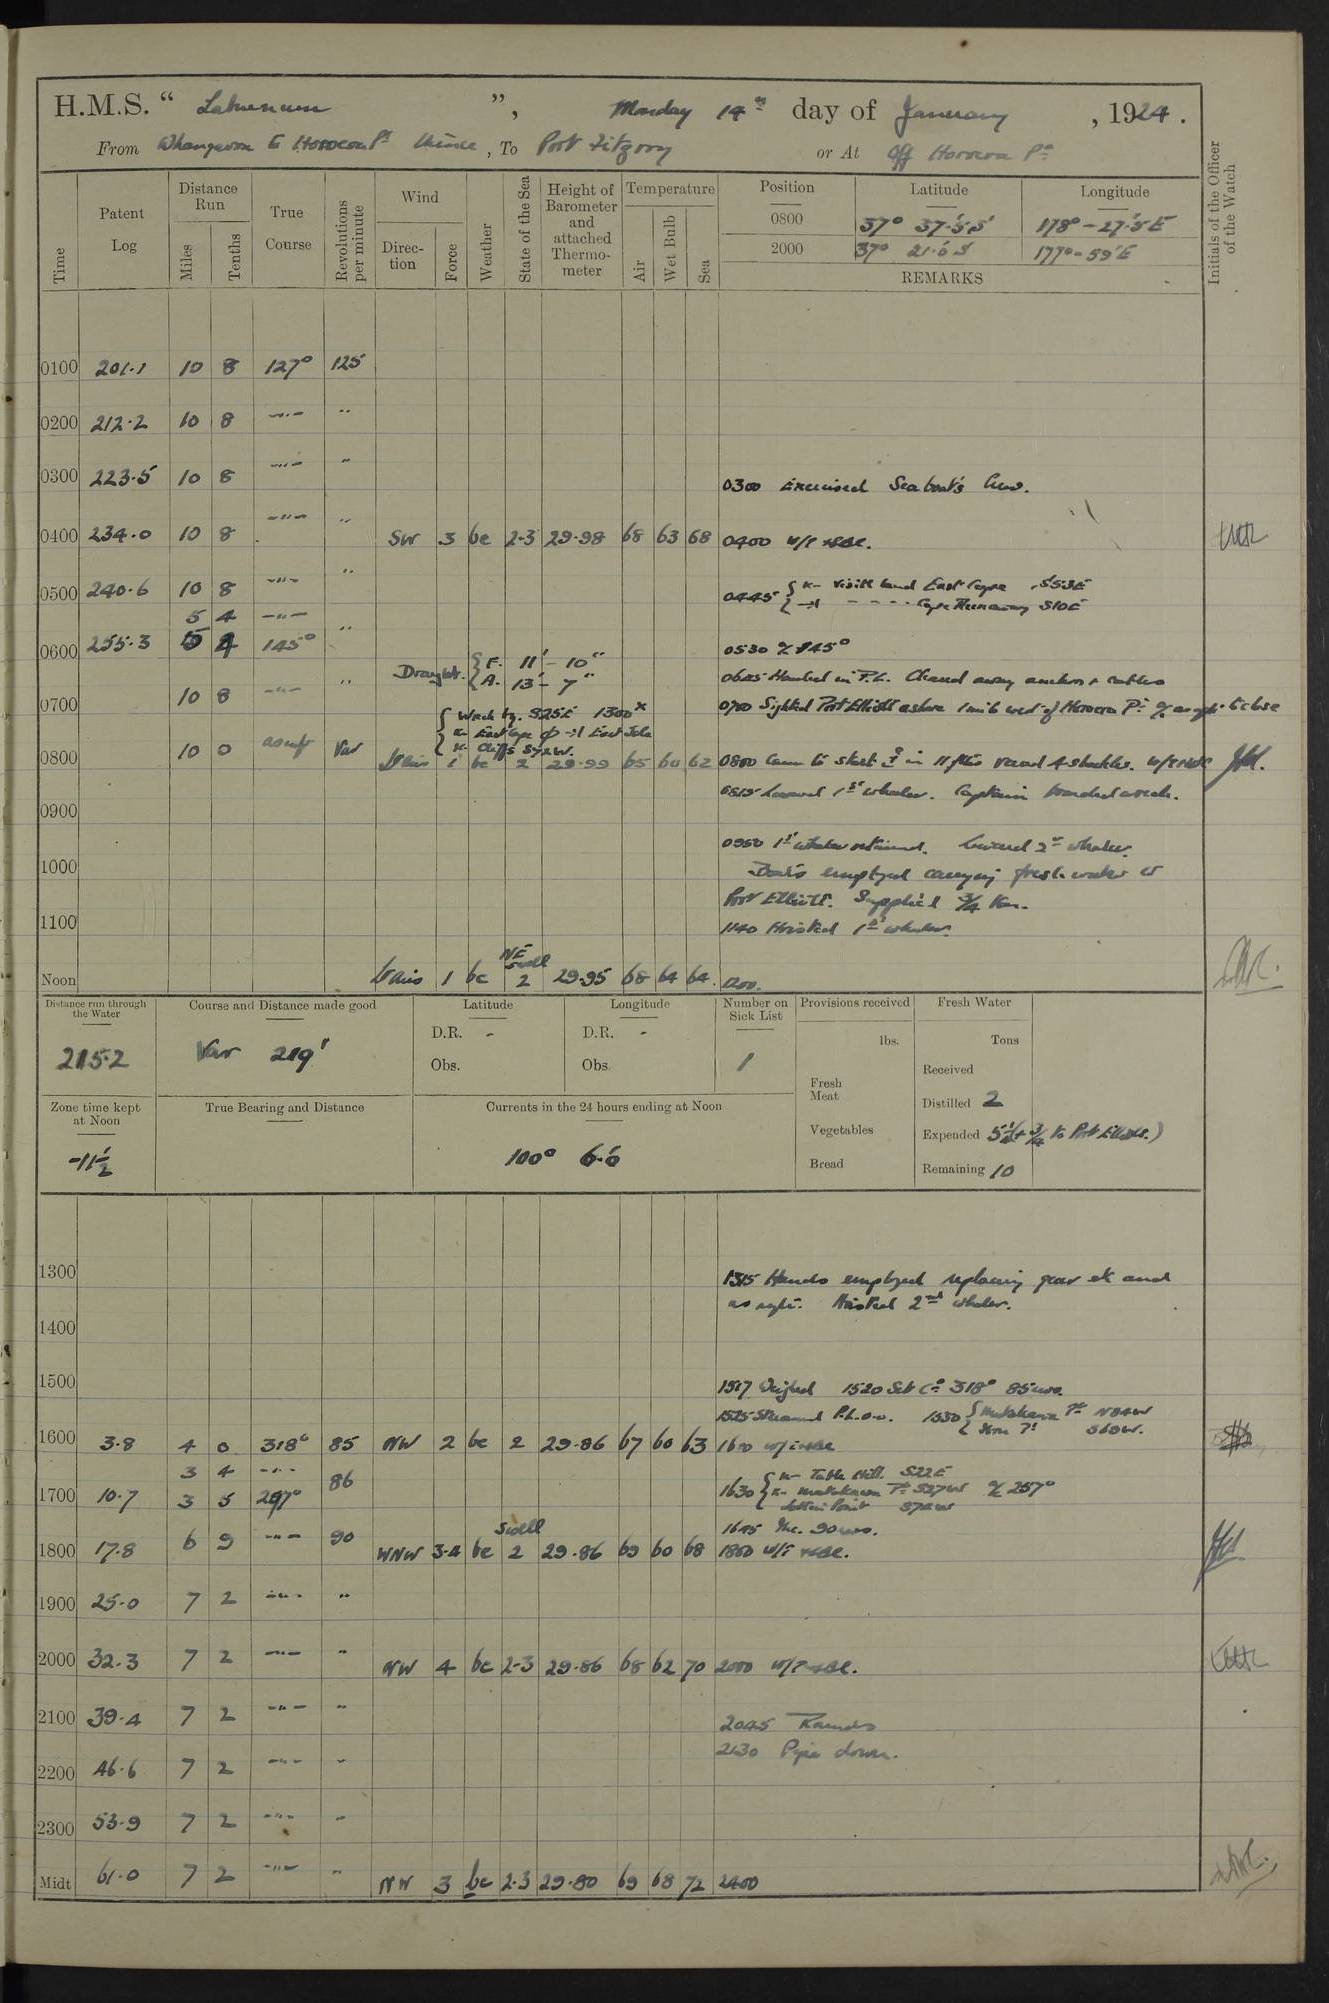 H.M.S. “ Laburnum ”, Monday 14th day of January, 1924.
From Whangaroa to Horoera Pt thence, To Port Fitzroy or At Off Horoera Pt
Time
Patent Log
Distance Run
Miles
Tenths
True Course
Revolutions per minute
Wind
Direction
Force
Weather
State of the Sea
Height of Barometer and attached Thermometer
Temperature
Air
Wet Bulb
Sea
Position
Latitude
Longitude
0800 37° 37'.5 S 178° - 27'.5 E
2000 37° 21'.6 S 177° - 59' E
REMARKS
Initials of the Officer of the Watch
0100 201.1 10 8 127° 125
0200 212.2 10 8 -"- "
0300 223.5 10 8 -"- "
0300 Exercised Seaboat's Crew.
0400 234.0 10 8 -"- " SW 3 bc 2-3 29.98 68 63 68 0400
0500 240.6 10 8 -"- "
0445 visible land East Cape S53E
Cape Runaway S10E
5 4 -"-
0600 255.3 5 4 145° "
0530 145°
Draught. F. 11' - 10"
A. 13' - 7"
0645 Hauled in P.L. Cleared away anchor & cables
0700 10 8 -"- "
0700 Sighted Port Elliott ashore 1 mile west of Horoera Pt to close
Wreck bg. S25E 1300x
East Cape East Isle
Cliffs S72W.
0800 10 0 as req Var Vars 1 bc 2 29.99 65 60 62 0800 Came to in 11 fms 4 shackles.
0815 Lowered 1st whaler. Captain boarded wreck.
0900
0950 1st whaler returned. Lowered 2nd whaler.
1000
Boats employed carrying fresh water to
Port Elliott. Supplied 3/4 ton.
1100
1140 Hoisted 1st whaler.
NE swell
Noon Vars 1 bc 2 29.95 68 64 64 1200.
Distance run through the Water
215.2
Course and Distance made good
Var 219'
Latitude
D.R. -
Obs.
Longitude
D.R. -
Obs.
Number on Sick List
1
Provisions received
lbs.
Fresh Meat
Vegetables
Bread
Fresh Water
Tons
Received
Distilled 2
Expended 5 1/4 (+ 3/4 to Port Elliott.)
Remaining 10
Zone time kept at Noon
-11 1/2
True Bearing and Distance
Currents in the 24 hours ending at Noon
100° 6.6
1300
1315 Hands employed replacing gear etc and
as reqte. Hoisted 2nd whaler.
1400
1500
1517 Weighed 1520 Set Co 318° 85 revs.
1525 Streamed P.L. 0.0. 1530 Matakaoa Pt N84W
1600 3.8 4 0 318° 85 NW 2 bc 2 29.86 67 60 63 1600
3 4 -"- 86
1700 10.7 3 5 297°
1630 Table Hill. S22E
Matakaoa Pt S27W 257°
1645 Inc. 90 revs.
swell
1800 17.8 6 9 -"- 90 WNW 3-4 bc 2 29.86 69 60 68 1800
1900 25.0 7 2 -"- "
2000 32.3 7 2 -"- " NW 4 bc 2-3 29.86 68 62 70 2000
2100 39.4 7 2 -"- "
2045 Rounds
2130 Pipe down.
2200 46.6 7 2 -"- "
2300 53.9 7 2 -"- "
Midt 61.0 7 2 -"- " NW 3 bc 2-3 29.80 69 68 72 2400